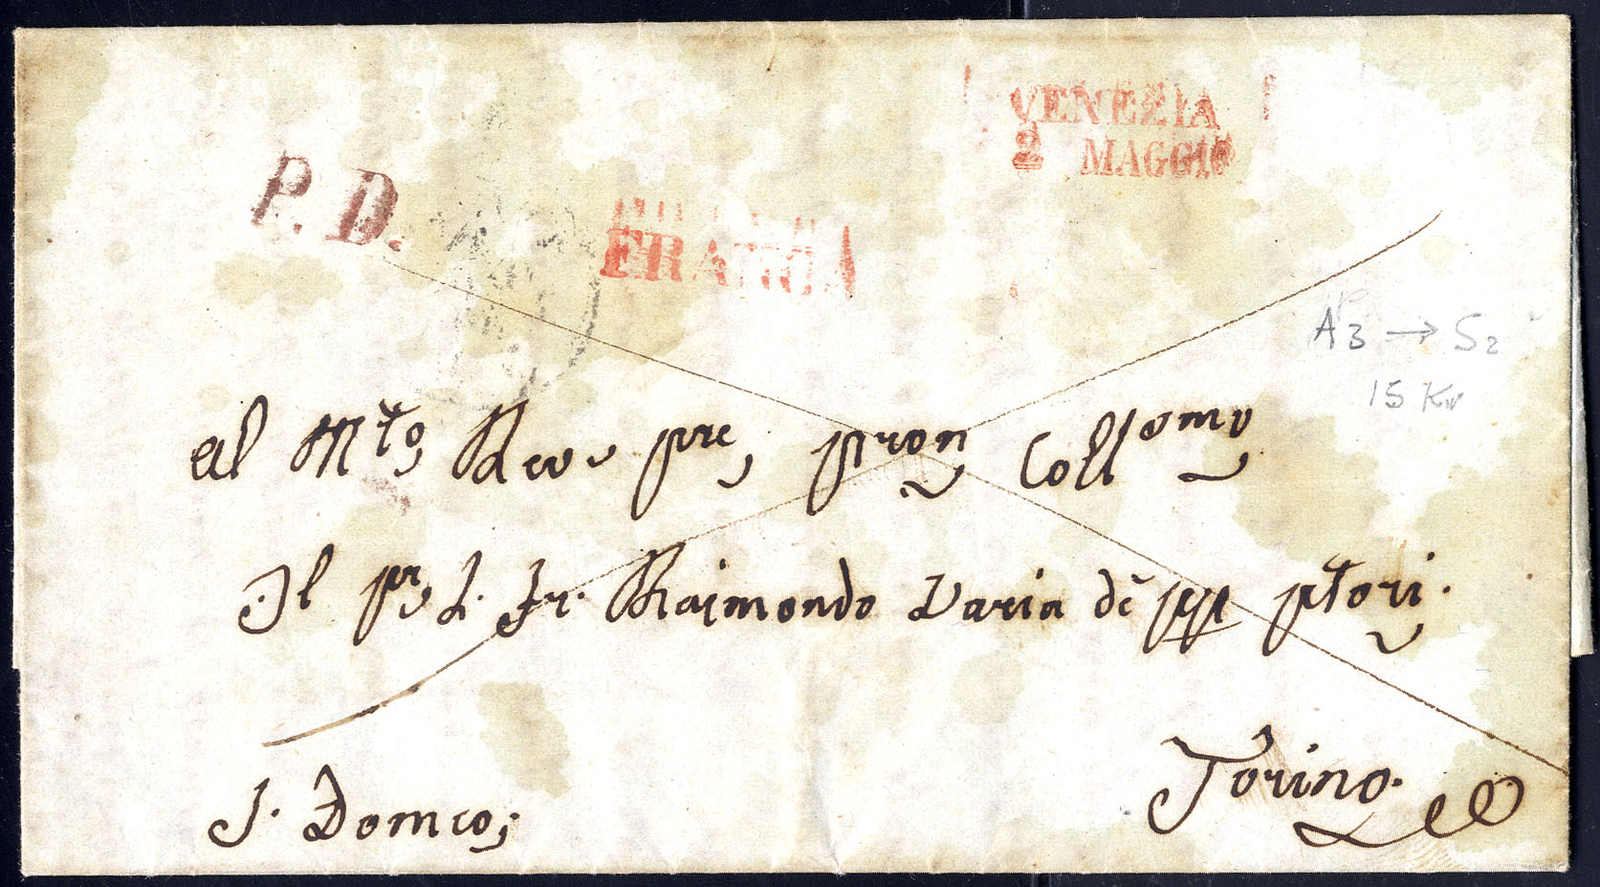 VENEZIA
2 MAGGIO
P. D.
FRANCA
A3 → S2
15 Kr
al Mto Revo pre, pron Collomo
Il pr, L. Fr. Raimondo Varia dē pp ptori.
S. Domco;
Torino.